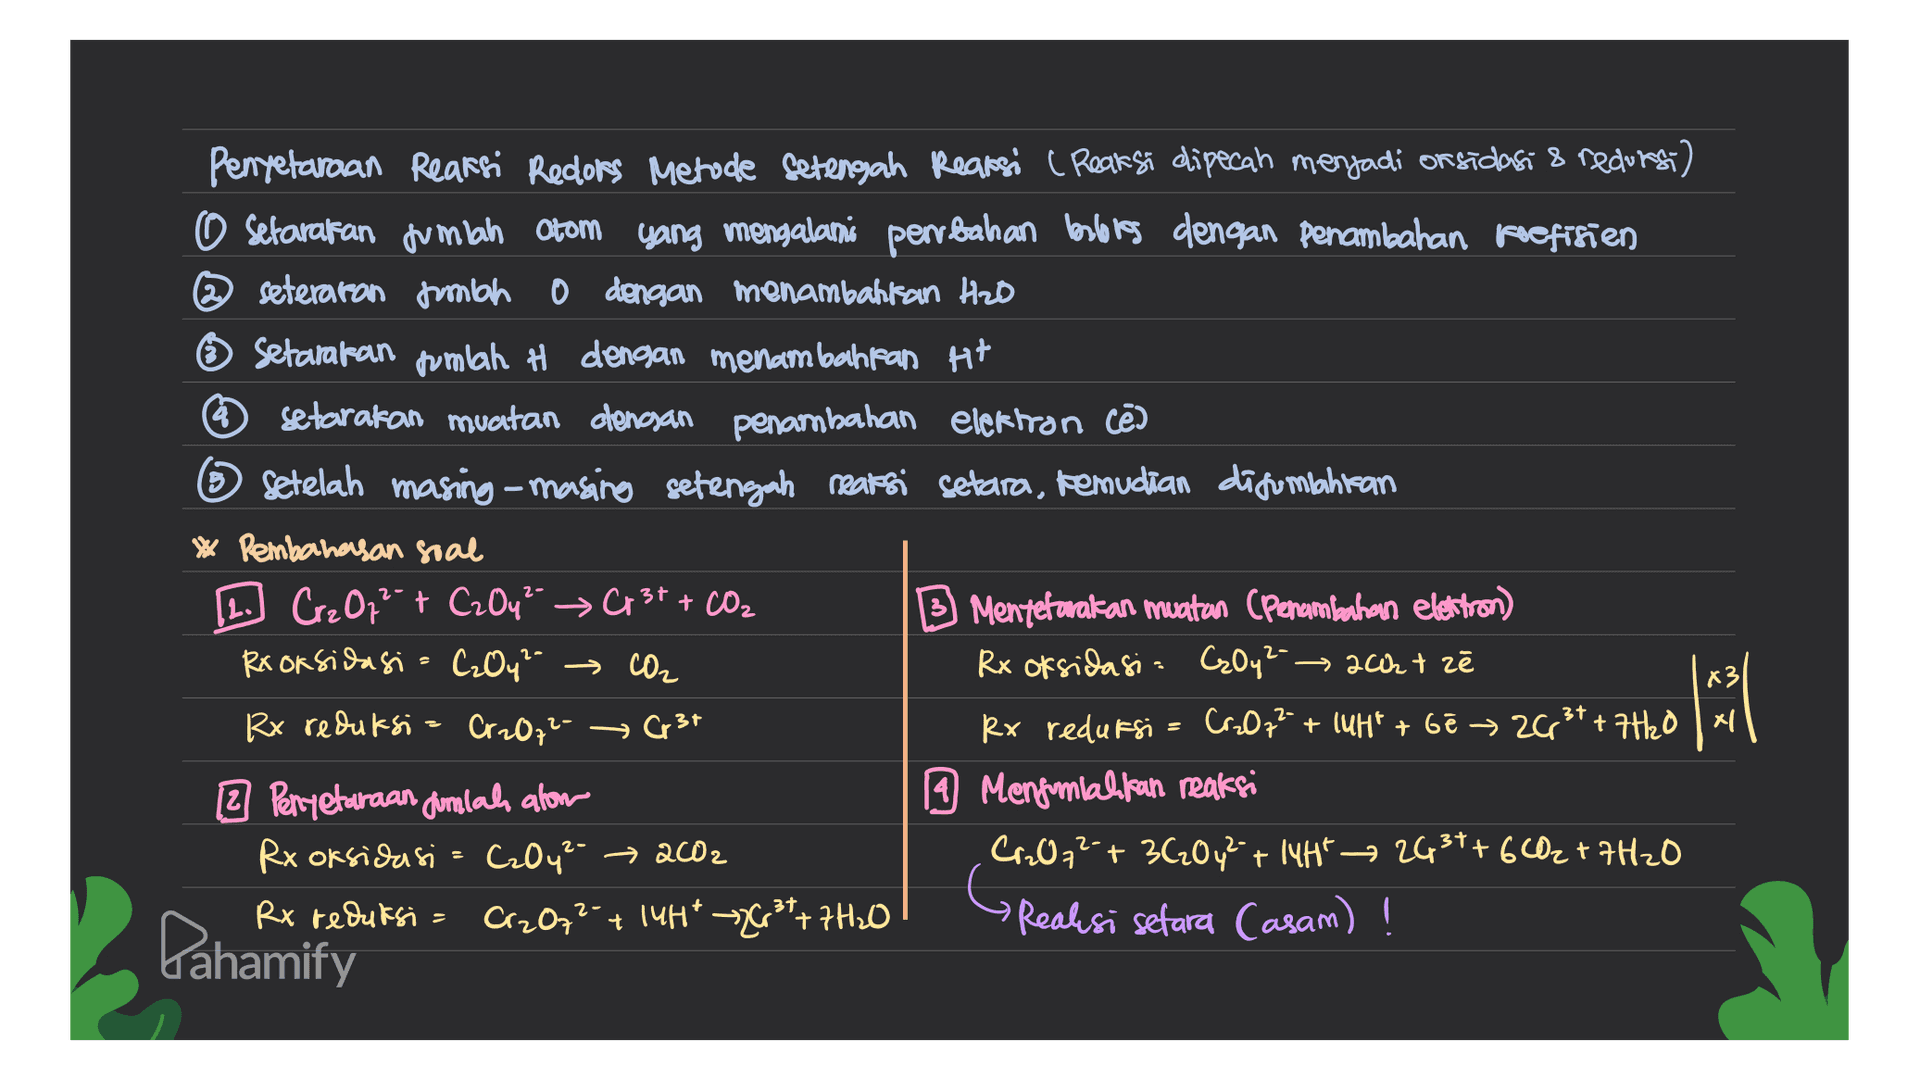 Penyetaraan Reaksi Redoks Metode Setengah Reaksi (Reaksi dipecah menjadi oksidasi & reduksi)
① Setarakan jumlah atom yang mengalami perubahan biloks dengan penambahan koefisien
② seterakan jumlah O dengan menambahkan H₂O
③ Setarakan jumlah H dengan menambahkan H⁺
④ setarakan muatan dengan penambahan elektron (ē)
⑤ Setelah masing-masing setengah reaksi setara, kemudian dijumlahkan
* Pembahasan soal
1. Cr₂O₇²⁻ + C₂O₄²⁻ → Cr³⁺ + CO₂
Rx oksidasi = C₂O₄²⁻ → CO₂
Rx reduksi = Cr₂O₇²⁻ → Cr³⁺
2 Penyetaraan jumlah atom
Rx oksidasi = C₂O₄²⁻ → 2CO₂
Rx reduksi = Cr₂O₇²⁻ + 14H⁺ → 2Cr³⁺ + 7H₂O
3 Menyetarakan muatan (Penambahan elektron)
Rx oksidasi = C₂O₄²⁻ → 2CO₂ + 2ē | x3 |
Rx reduksi = Cr₂O₇²⁻ + 14H⁺ + 6ē → 2Cr³⁺ + 7H₂O | x1 |
4 Menjumlahkan reaksi
Cr₂O₇²⁻ + 3C₂O₄²⁻ + 14H⁺ → 2Cr³⁺ + 6CO₂ + 7H₂O
→ Reaksi setara (asam) !
Pahamify